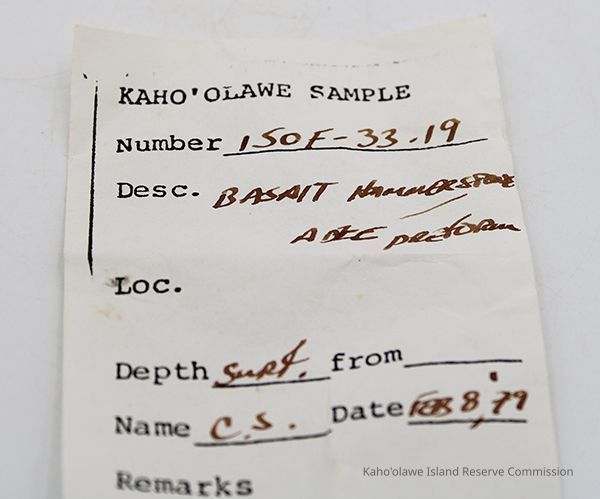 KAHO'OLAWE SAMPLE
Number 150F-33.19
Desc. BASALT HAMMERSTONE
ADZE PREFORM
Loc.
Depth Surf. from
Name C.S. Date FEB 8, '79
Remarks
Kaho'olawe Island Reserve Commission